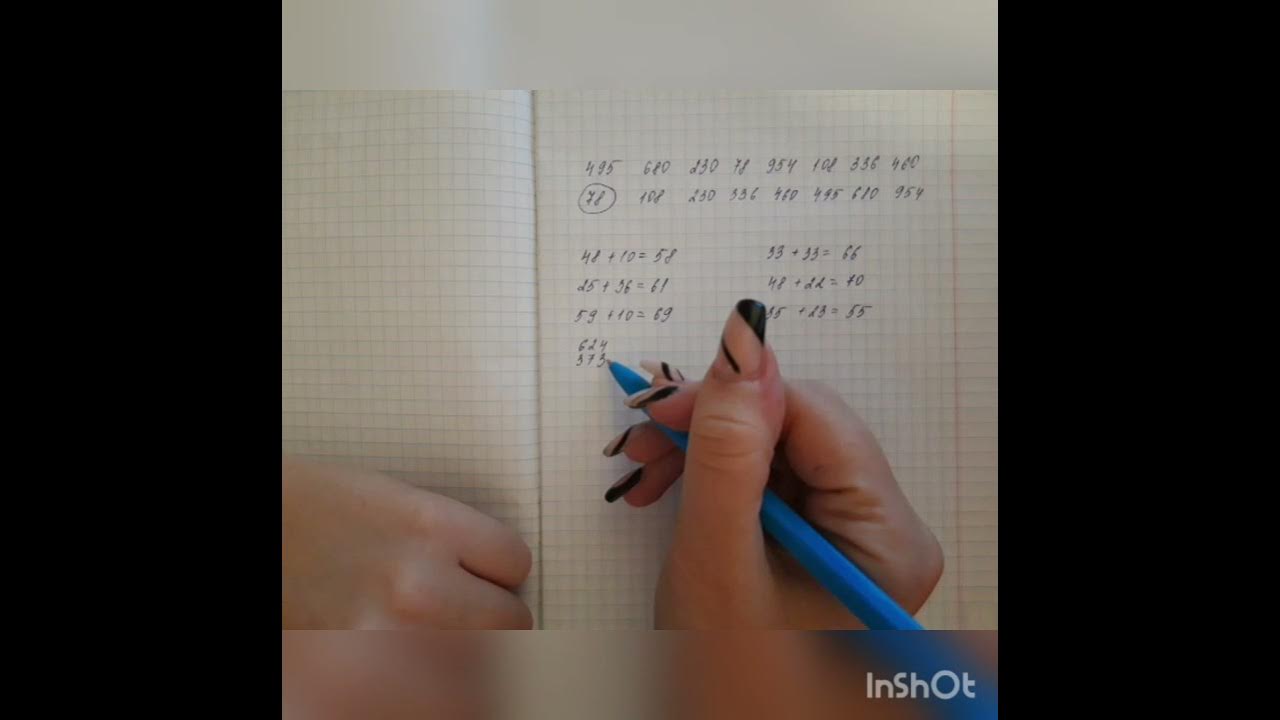 495 680 230 78 954 108 336 460
78 108 230 336 460 495 680 954
48 + 10 = 58 33 + 33 = 66
25 + 36 = 61 48 + 22 = 70
59 + 10 = 69 35 + 23 = 55
624
373
InShOt